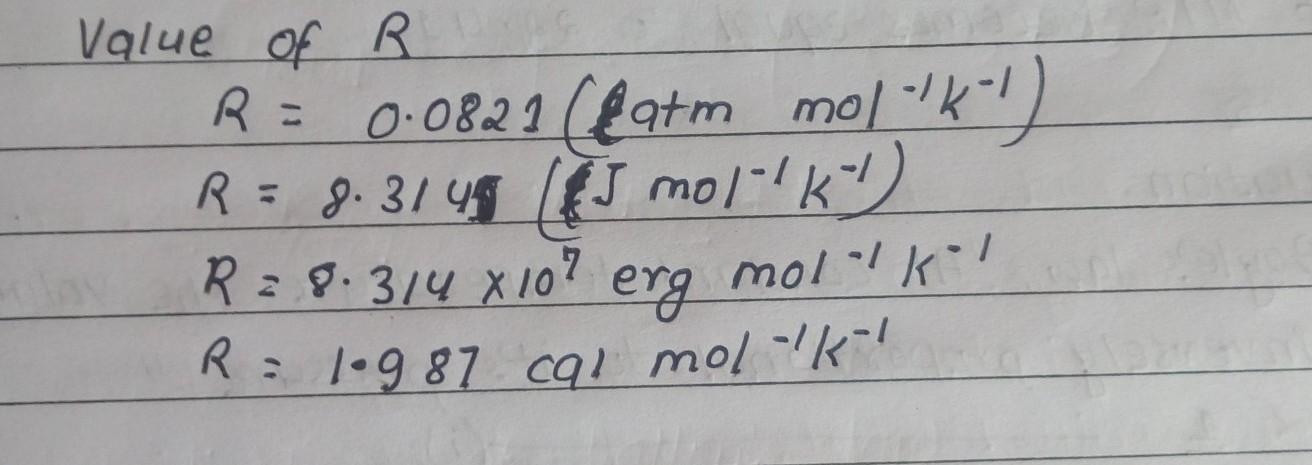 Value of R
R = 0.0821 (ℓ atm mol⁻¹ k⁻¹)
R = 8.314 (J mol⁻¹ k⁻¹)
R = 8.314 × 10⁷ erg mol⁻¹ k⁻¹
R = 1.987 cal mol⁻¹ k⁻¹